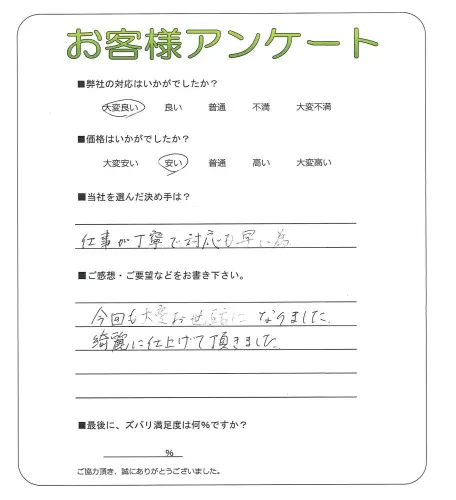 お客様アンケート
■弊社の対応はいかがでしたか?
大変良い 良い 普通 不満 大変不満
■価格はいかがでしたか?
大変安い 安い 普通 高い 大変高い
■当社を選んだ決め手は?
仕事が丁寧で対応も早い為
■ご感想・ご要望などをお書き下さい。
今回も大変お世話になりました。
綺麗に仕上げて頂きました。
■最後に、ズバリ満足度は何%ですか?
%
ご協力頂き、誠にありがとうございました。